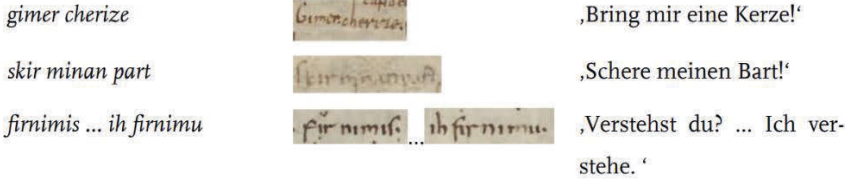 gimer cherize Gimer cherize. ‚Bring mir eine Kerze!‘
skir minan part Skir minan part. ‚Schere meinen Bart!‘
firnimis ... ih firnimu Fir nimis. ... ih fir nimu. ‚Verstehst du? ... Ich ver-
stehe. ‘